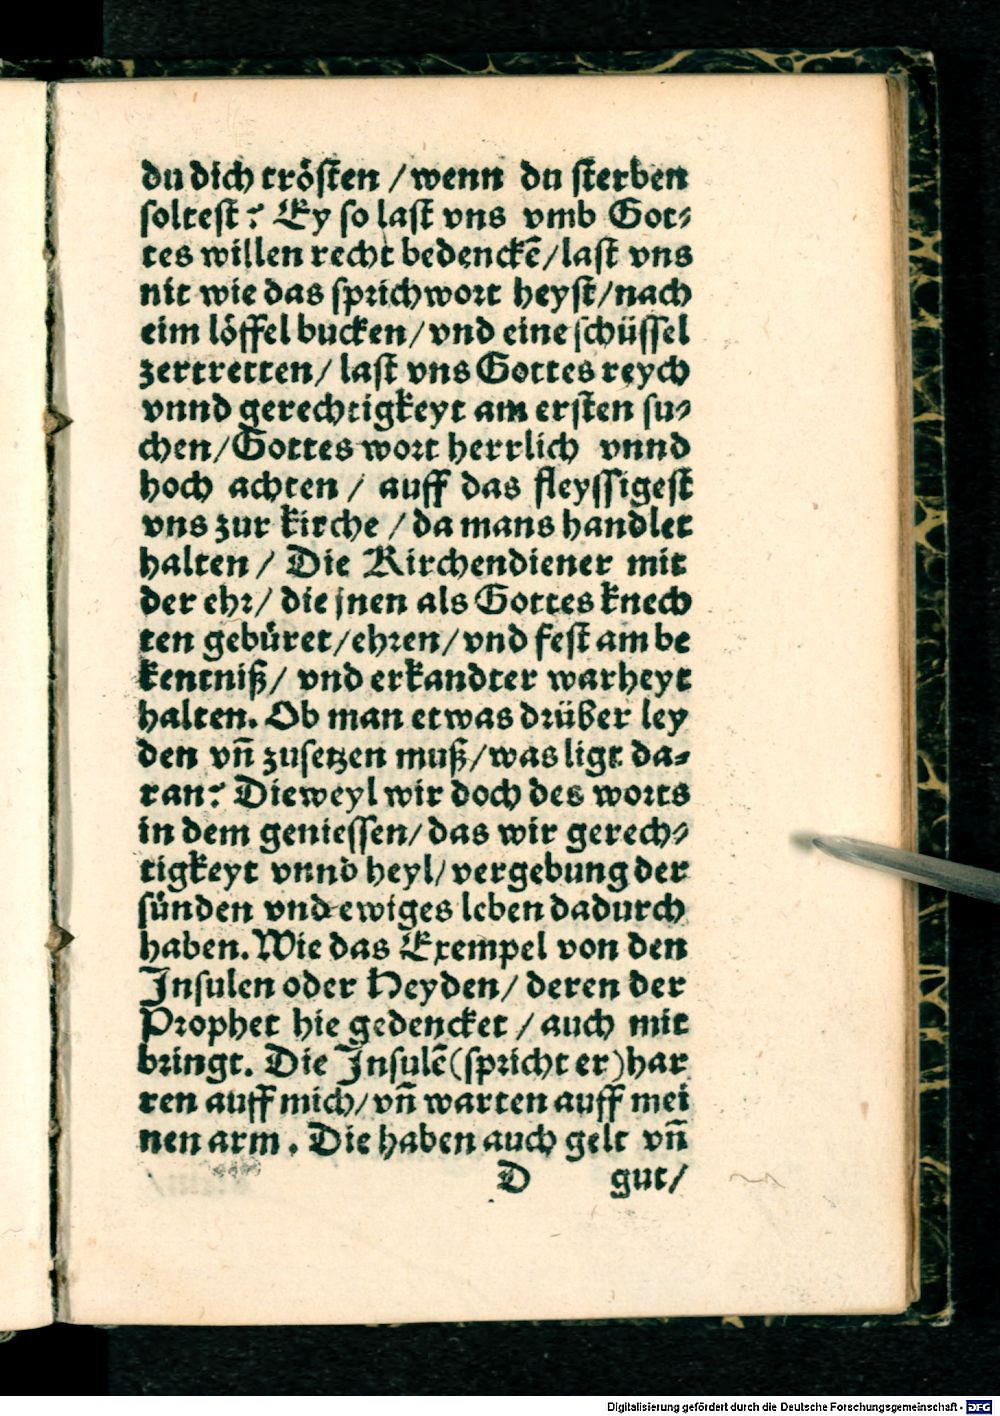 du dich trösten / wenn du sterben
soltest? Ey so last vns vmb Got⸗
tes willen recht bedenckē/last vns
nit wie das sprichwort heyst/nach
eim löffel bucken/vnd eine schüssel
zertretten/ last vns Gottes reych
vnnd gerechtigkeyt am ersten su⸗
chen/Gottes wort herrlich vnnd
hoch achten / auff das fleyssigest
vns zur kirche / da mans handlet
halten / Die Kirchendiener mit
der ehr/ die jnen als Gottes knech
ten gebüret/ehren/vnd fest am be
kentniß/ vnd erkandter warheyt
halten. Ob man etwas drüber ley
den vn̄ zusetzen muß/was ligt da⸗
ran? Dieweyl wir doch des worts
in dem geniessen/das wir gerech⸗
tigkeyt vnnd heyl/vergebung der
sünden vnd ewiges leben dadurch
haben. Wie das Exempel von den
Insulen oder Heyden/ deren der
Prophet hie gedencket / auch mit
bringt. Die Insulē(spricht er)har
ren auff mich/vn̄ warten auff mei
nen arm. Die haben auch gelt vn̄
D gut/
Digitalisierung gefördert durch die Deutsche Forschungsgemeinschaft - DFG